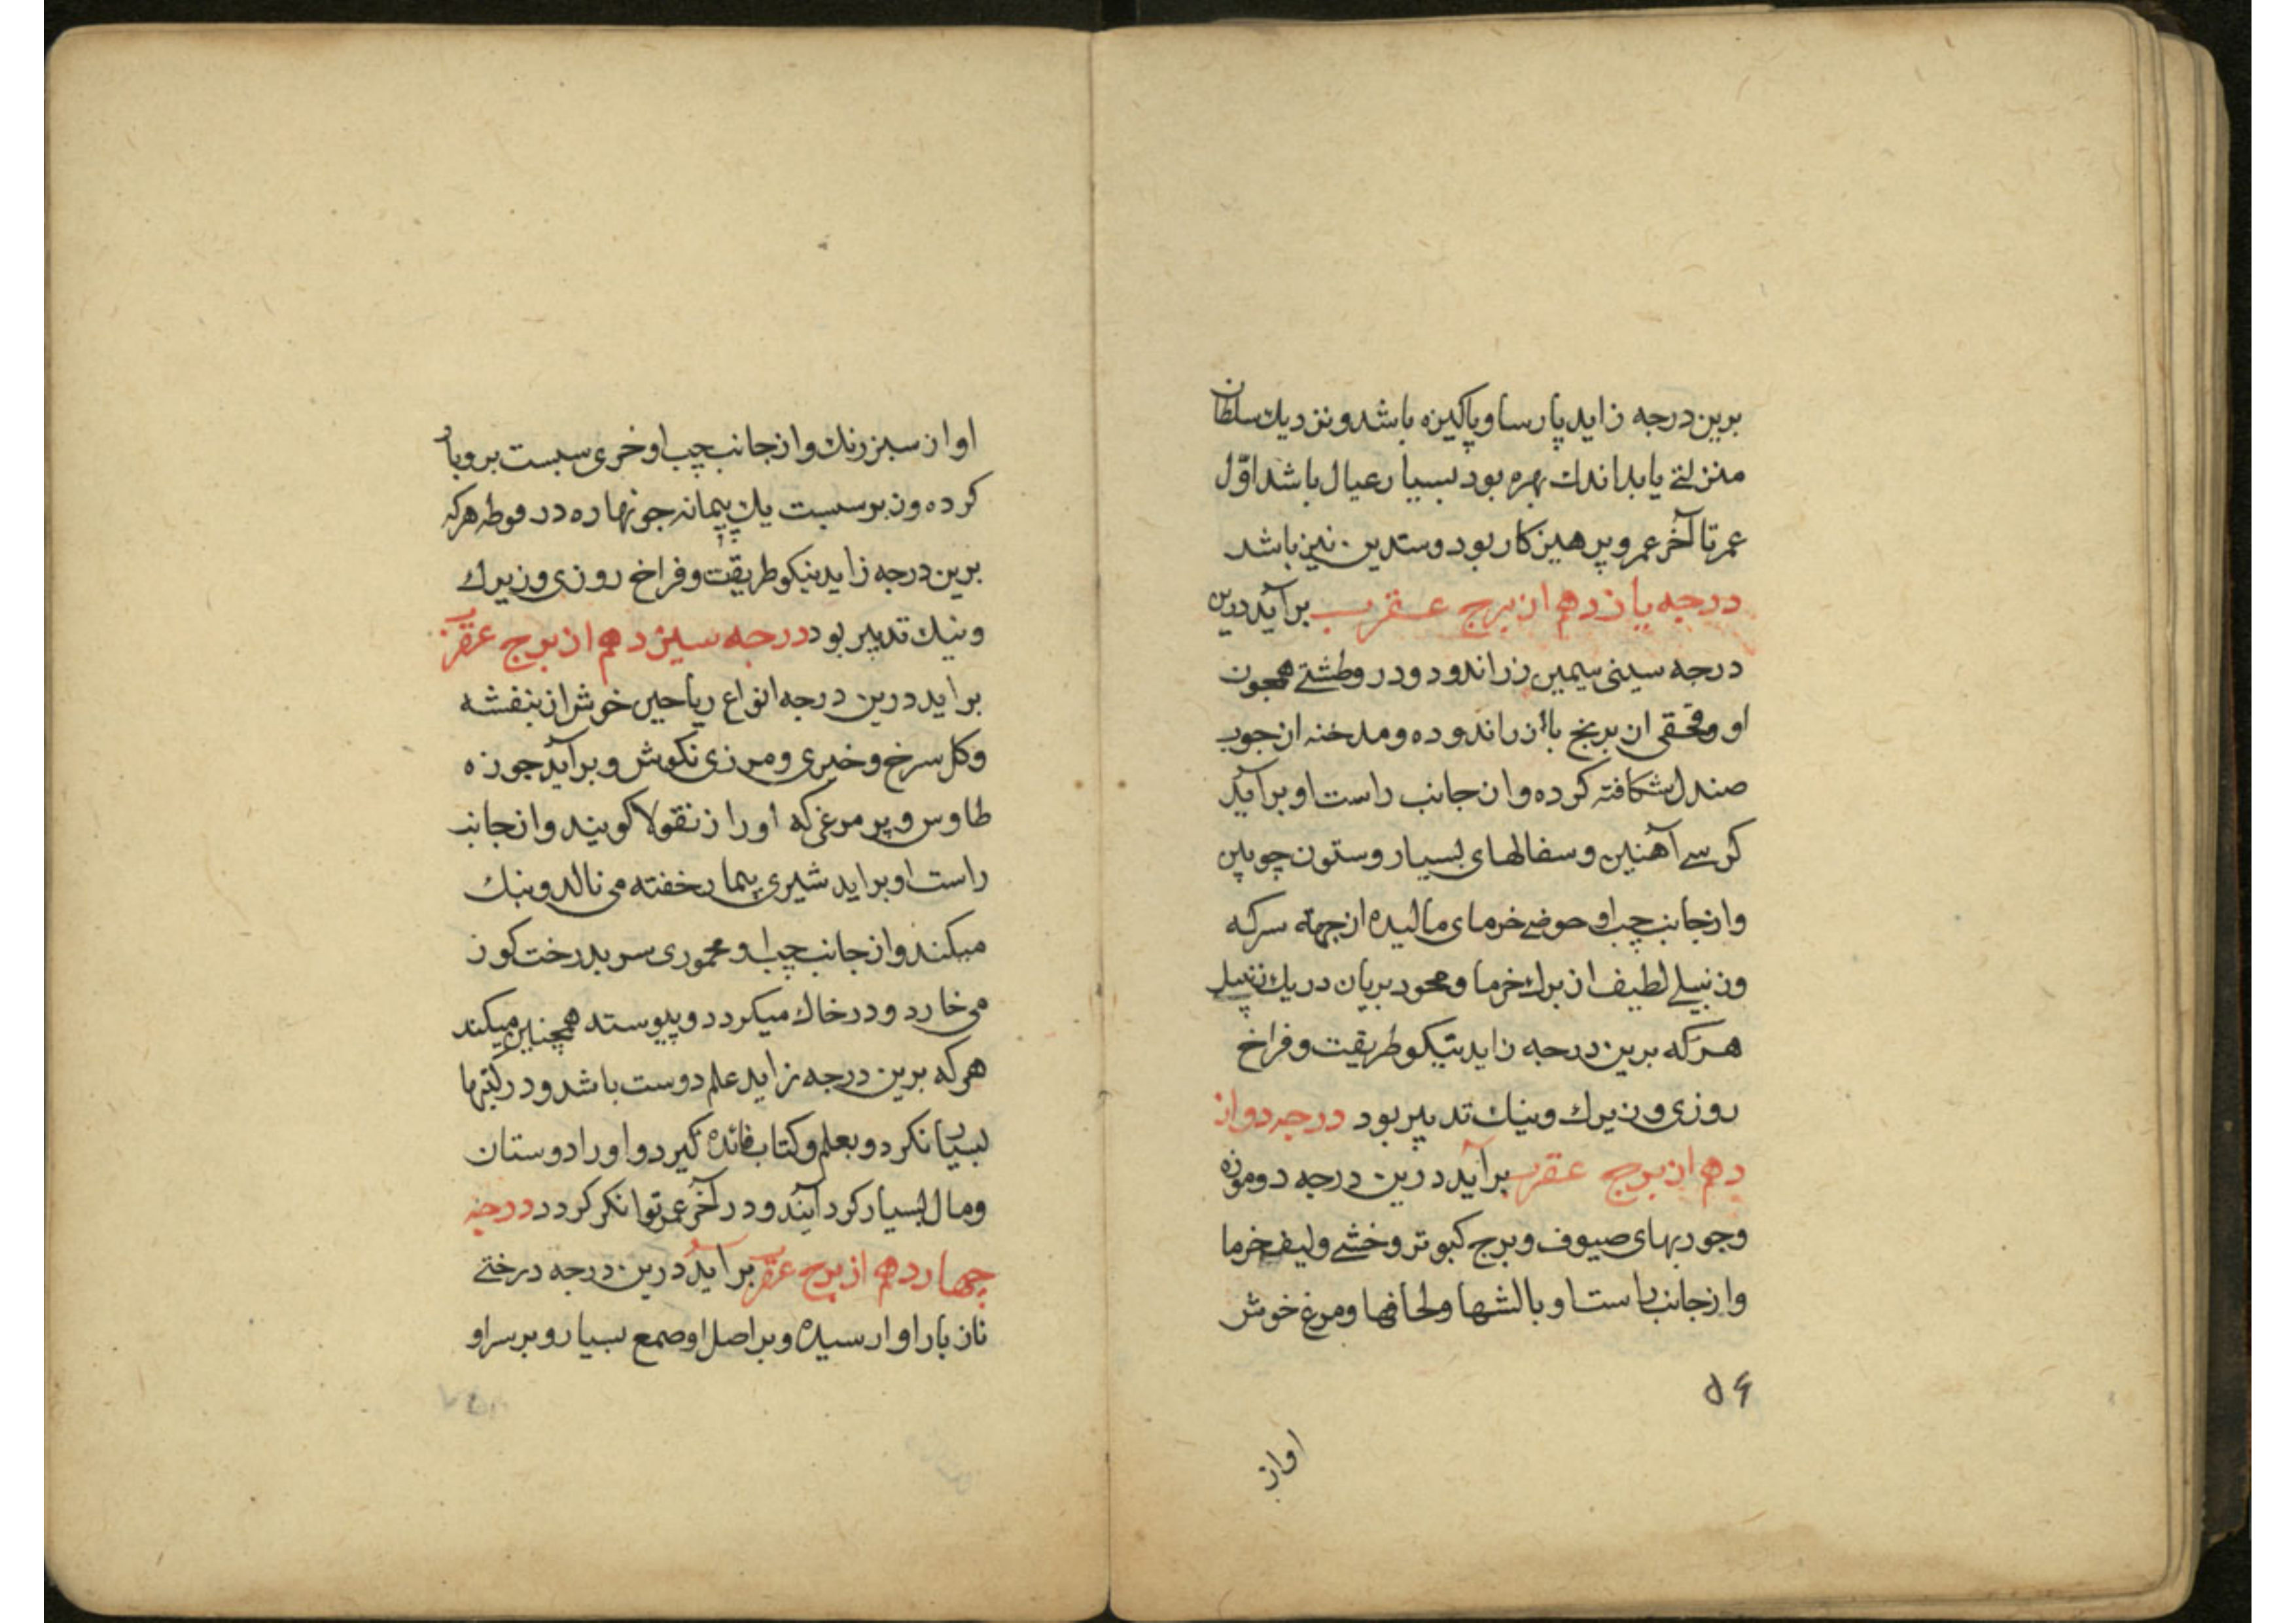 برین درجه زاید پارسا و پاکیزه باشد و نزدیك سلطان
منزلتی یابد اندك بهره بود بسیار عیال باشد اوّل
عمر تا آخر عمر و پرهیزکار بود و ستدین نیز باشد
درجه یازدهم از برج عقرب برآید درین
درجه سینی سیمین زر اندود و در و طشتی همجون
او و محقی از برنج بااز راندوده و مدخنه از جوب
صندل شکافته کرده و از جانب راست او برآید
کرسی آهنین و سفالهای بسیار و ستون چوپین
و از جانب چپ او حوضی خرمای مالیده از جهة سرکه
و زنبیلی لطیف از برك خرما و محود بریان در یك زنبیل
هرکه برین درجه زاید نیکو طریقت و فراخ
روزی و زیرك و نیك تدبیر بود درجه دواز
دهم از برج عقرب برآید درین درجه دو موزه
و جوربهای صیوف و برج کبوتر و خشی و لیف خرما
و از جانب راست او بالشها و لحافها و مرغ خوش
۵۶
اواز
اواز سبز رنك و از جانب چپ او خری سبست برو بار
کرده و نر بو سبست یك پیمانه جو نهاره در فوطه هرکه
برین درجه زاید نیکو طریقت و فراخ روزی و زیرك
و نیك تدبیر بود درجه سیزدهم از برج عقرب
براید درین درجه انواع ریاحین خوش از بنفشه
و کل سرخ و خیری و مرزی نکوش و برآید جوزه
طاوس و پر مرغی که او را زنقولا کویند و از جانب
راست او براید شیری بیمار خفته می نالد و بنك
میکند و از جانب چپ او محموری سر بدرخت کوز
می خارد و در خاك میکردد و پیوسته همچنین میکند
هرکه برین درجه زاید علم دوست باشد و در کتبها
بسیار نکرد و بعلم و کتاب فائده کیرد و او را دوستان
و مال بسیار کرد آیند و در آخر عمر توانکر کردد درجه
چهاردهم از برج عقرب برآید درین درجه درختی
نان بار او ار سیده و بر اصل او صمع بسیار و بر سر او